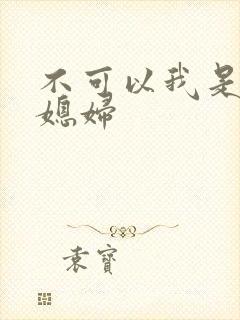 不可以我是
媳妇
袁寶